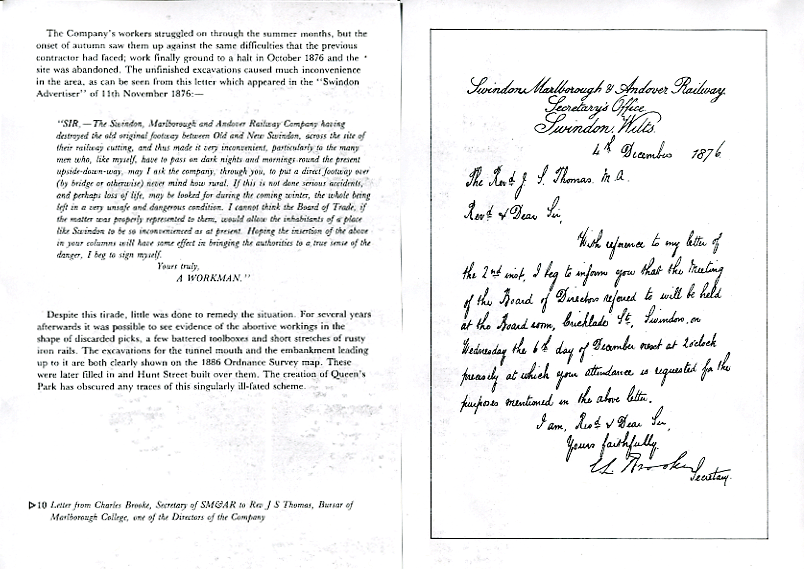 The Company's workers struggled on through the summer months, but the
onset of autumn saw them up against the same difficulties that the previous
contractor had faced; work finally ground to a halt in October 1876 and the
site was abandoned. The unfinished excavations caused much inconvenience
in the area, as can be seen from this letter which appeared in the "Swindon
Advertiser" of 11th November 1876:—
"SIR, — The Swindon, Marlborough and Andover Railway Company having
destroyed the old original footway between Old and New Swindon, across the site of
their railway cutting, and thus made it very inconvenient, particularly to the many
men who, like myself, have to pass on dark nights and mornings round the present
upside-down-way, may I ask the company, through you, to put a direct footway over
(by bridge or otherwise) never mind how rural. If this is not done serious accidents,
and perhaps loss of life, may be looked for during the coming winter, the whole being
left in a very unsafe and dangerous condition. I cannot think the Board of Trade, if
the matter was properly represented to them, would allow the inhabitants of a place
like Swindon to be so inconvenienced as at present. Hoping the insertion of the above
in your columns will have some effect in bringing the authorities to a true sense of the
danger, I beg to sign myself.
Yours truly,
A WORKMAN."
Despite this tirade, little was done to remedy the situation. For several years
afterwards it was possible to see evidence of the abortive workings in the
shape of discarded picks, a few battered toolboxes and short stretches of rusty
iron rails. The excavations for the tunnel mouth and the embankment leading
up to it are both clearly shown on the 1886 Ordnance Survey map. These
were later filled in and Hunt Street built over them. The creation of Queen's
Park has obscured any traces of this singularly ill-fated scheme.
▷10 Letter from Charles Brooke, Secretary of SM&AR to Rev J S Thomas, Bursar of
Marlborough College, one of the Directors of the Company
Swindon Marlborough & Andover Railway.
Secretary's Office
Swindon, Wilts.
4th December 1876.
The Revd J. S. Thomas. M.A.
Revd & Dear Sir,
With reference to my letter of
the 2nd inst, I beg to inform you that the Meeting
of the Board of Directors referred to will be held
at the Board room, Cricklade St, Swindon, on
Wednesday the 6th day of December next at 2 o'clock
precisely at which your attendance is requested for the
purposes mentioned in the above letter.
I am, Revd & Dear Sir,
Yours faithfully.
Brooke
Secretary.